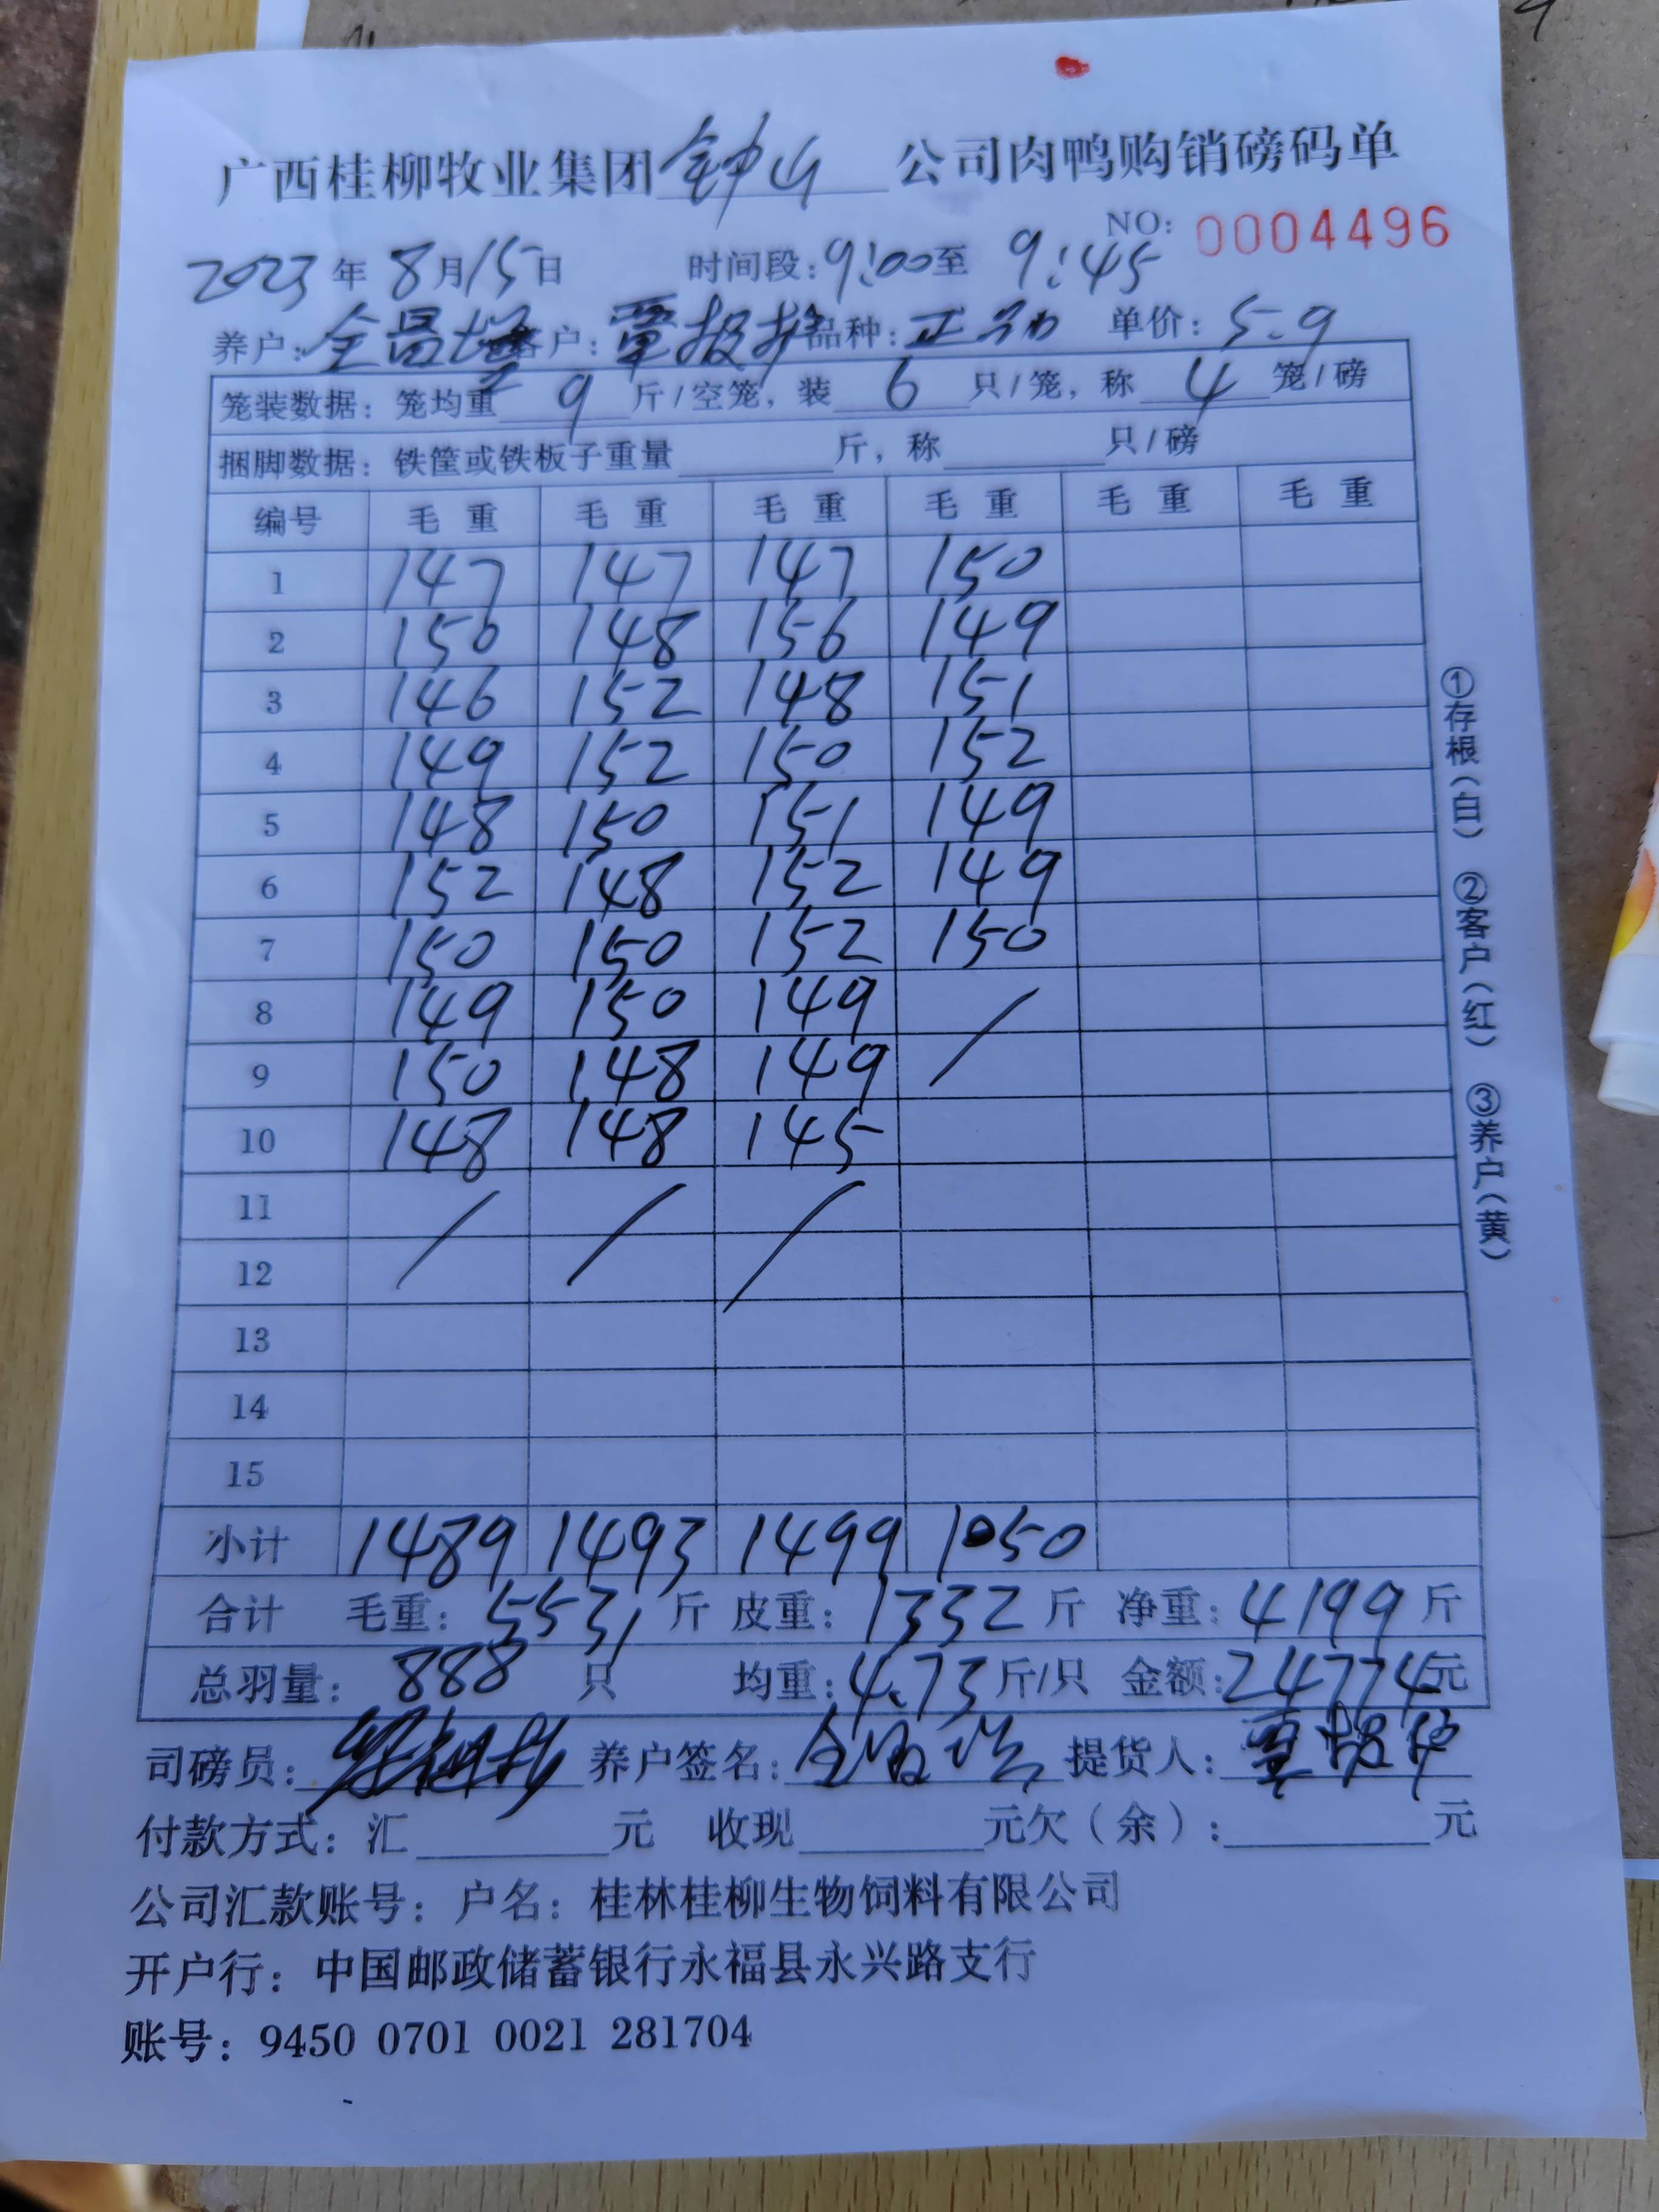 广西桂柳牧业集团钟山公司肉鸭购销磅码单
NO: 0004496
2023年8月15日 时间段:9:00至9:45
养户:全昌 客户:覃 品种:正 单价:5.9
笼装数据:笼均重9斤/空笼,装6只/笼,称4笼/磅
捆脚数据:铁筐或铁板子重量 斤,称 只/磅
编号 毛重 毛重 毛重 毛重 毛重 毛重
1 147 147 147 150
2 150 148 156 149
3 146 152 148 151
4 149 152 150 152
5 148 150 151 149
6 152 148 152 149
7 150 150 152 150
8 149 150 149 /
9 150 148 149
10 148 148 145
11 / / /
12
13
14
15
小计 1489 1493 1499 1050
合计 毛重:5531斤 皮重:1332斤 净重:4199斤
总羽量:888只 均重:4.73斤/只 金额:24774元
司磅员: 养户签名:全 提货人:覃
付款方式:汇 元 收现 元欠(余): 元
公司汇款账号:户名:桂林桂柳生物饲料有限公司
开户行:中国邮政储蓄银行永福县永兴路支行
账号:9450 0701 0021 281704
①存根(白) ②客户(红) ③养户(黄)